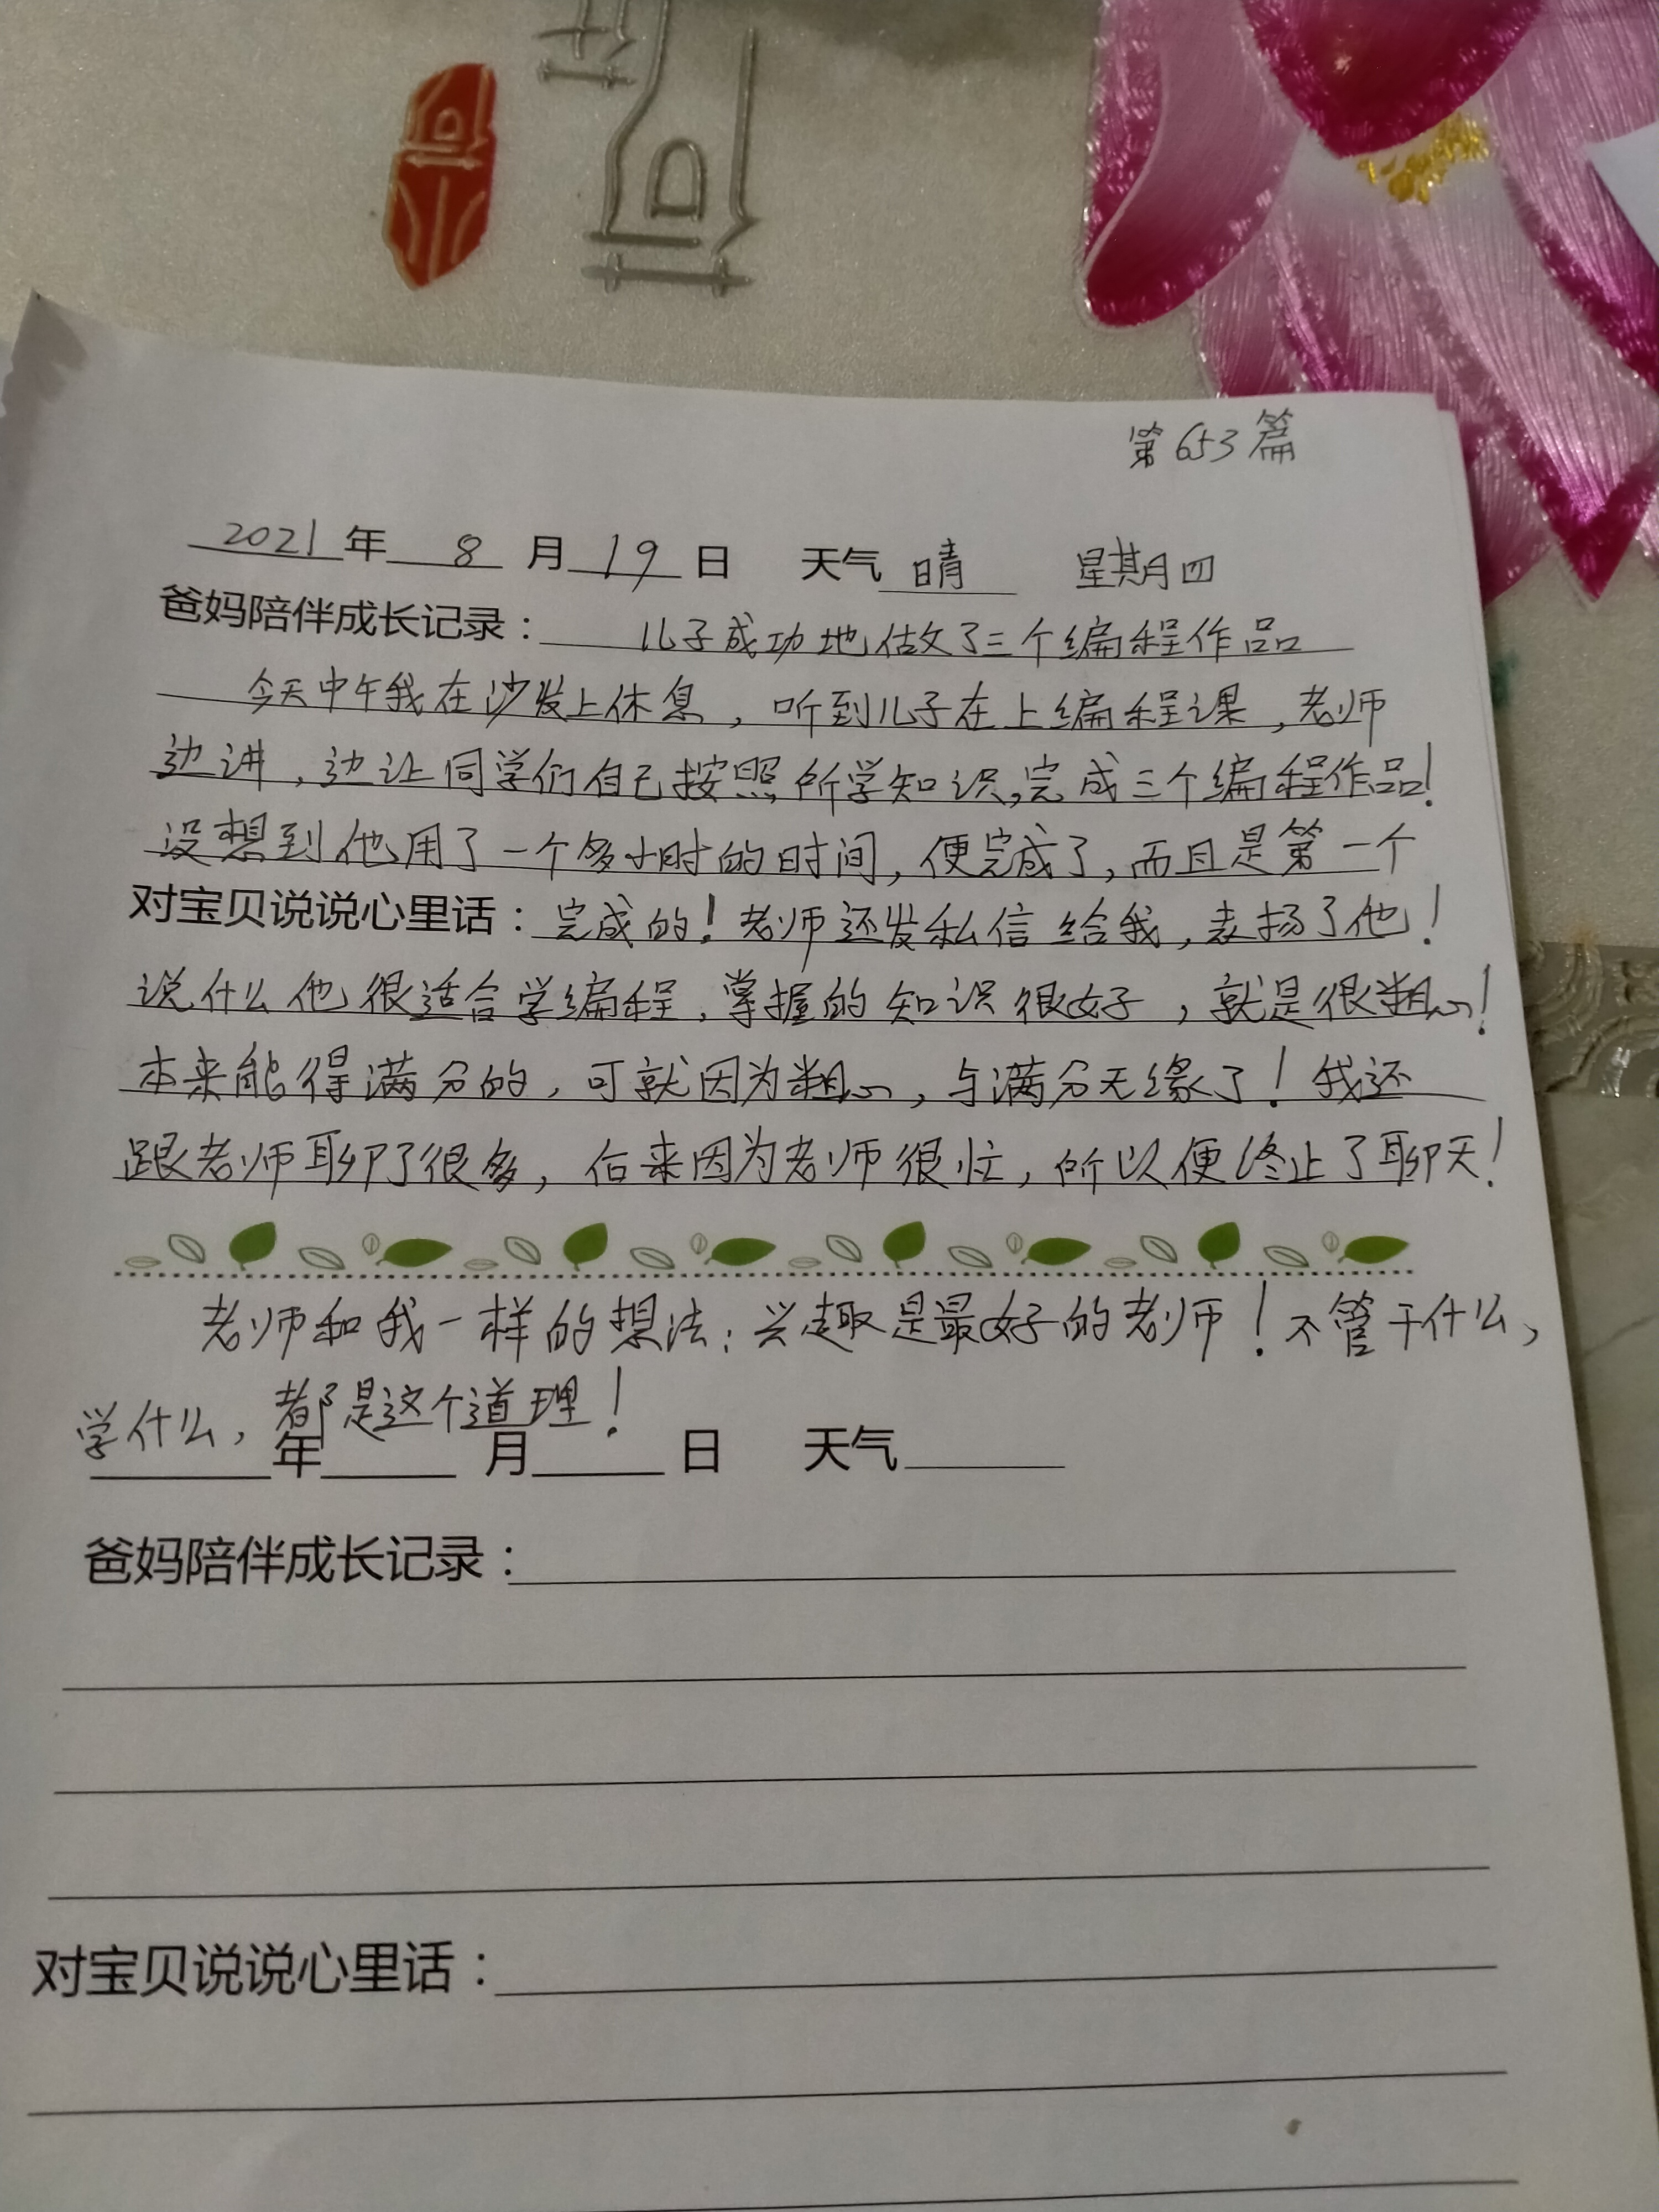 第653篇
2021年 8 月 19 日 天气 晴 星期四
爸妈陪伴成长记录： 儿子成功地做了三个编程作品
今天中午我在沙发上休息，听到儿子在上编程课，老师
边讲，边让同学们自己按照所学知识，完成三个编程作品！
没想到他用了一个多小时的时间，便完成了，而且是第一个
对宝贝说说心里话：完成的！老师还发私信给我，表扬了他！
说什么他很适合学编程，掌握的知识很好，就是很粗心！
本来能得满分的，可就因为粗心，与满分无缘了！我还
跟老师聊了很多，后来因为老师很忙，所以便终止了聊天！
老师和我一样的想法：兴趣是最好的老师！不管干什么，
学什么，都是这个道理！
年 月 日 天气
爸妈陪伴成长记录：
对宝贝说说心里话：